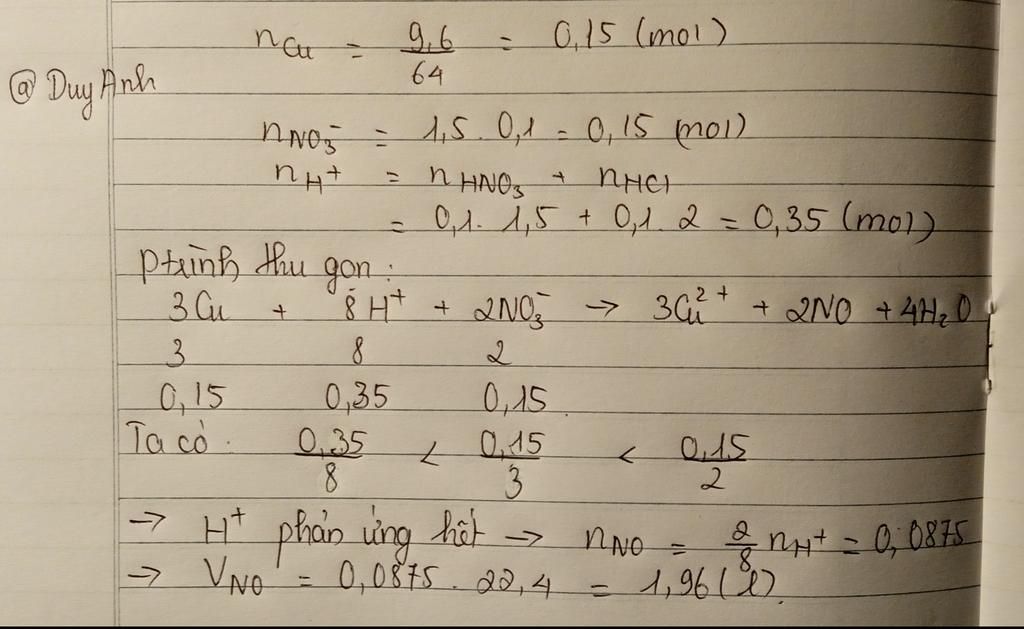 nCu = 9,6/64 = 0,15 (mol)
@ Duy Anh
nNO₃⁻ = 1,5 . 0,1 = 0,15 (mol)
nH⁺ = nHNO₃ + nHCl
= 0,1. 1,5 + 0,1. 2 = 0,35 (mol)
Ptrình thu gọn :
3Cu + 8H⁺ + 2NO₃⁻ → 3Cu²⁺ + 2NO + 4H₂O
3 8 2
0,15 0,35 0,15
Ta có : 0,35/8 < 0,15/3 < 0,15/2
→ H⁺ phản ứng hết → nNO = 2/8 nH⁺ = 0,0875
→ VNO = 0,0875 . 22,4 = 1,96 (l).